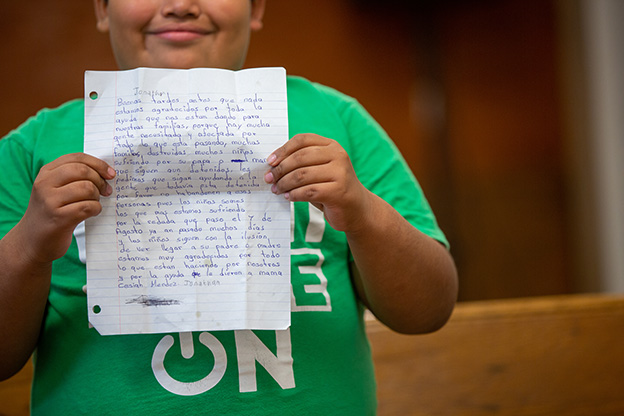 Jonathan
Buenas tardes antes que nada
estamos agradecidos por toda la
ayuda que nos estan dando para
nuestras familias, porque hay mucha
gente necesitada y afectada por
todo lo que esta pasando, muchas
familias destruidas muchos niños
sufriendo por su papa o mama
que siguen aun detenidos, les
pedimos que sigan ayudando a la
gente que todavia esta detenida
por favor no habandonen a esas
personas pues los niños somos
los que mas estamos sufriendo
por la redada que paso el 7 de
Agosto ya an pasado muchos dias
y los niños siguen con la ilusion
de ver llegar a su padre o madre
estamos muy agradecidos por todo
lo que estan haciendo por nosotros
y por la ayuda que le dieron a mama
Mendes Jonathan
E
ON